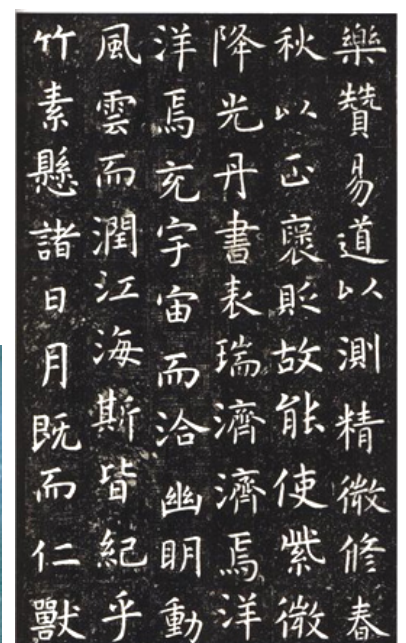 樂贊易道以測精微修春
秋以正褒貶故能使紫微
降光丹書表瑞濟濟焉洋
洋焉充宇宙而洽幽明動
風雲而潤江海斯皆紀乎
竹素懸諸日月既而仁獸